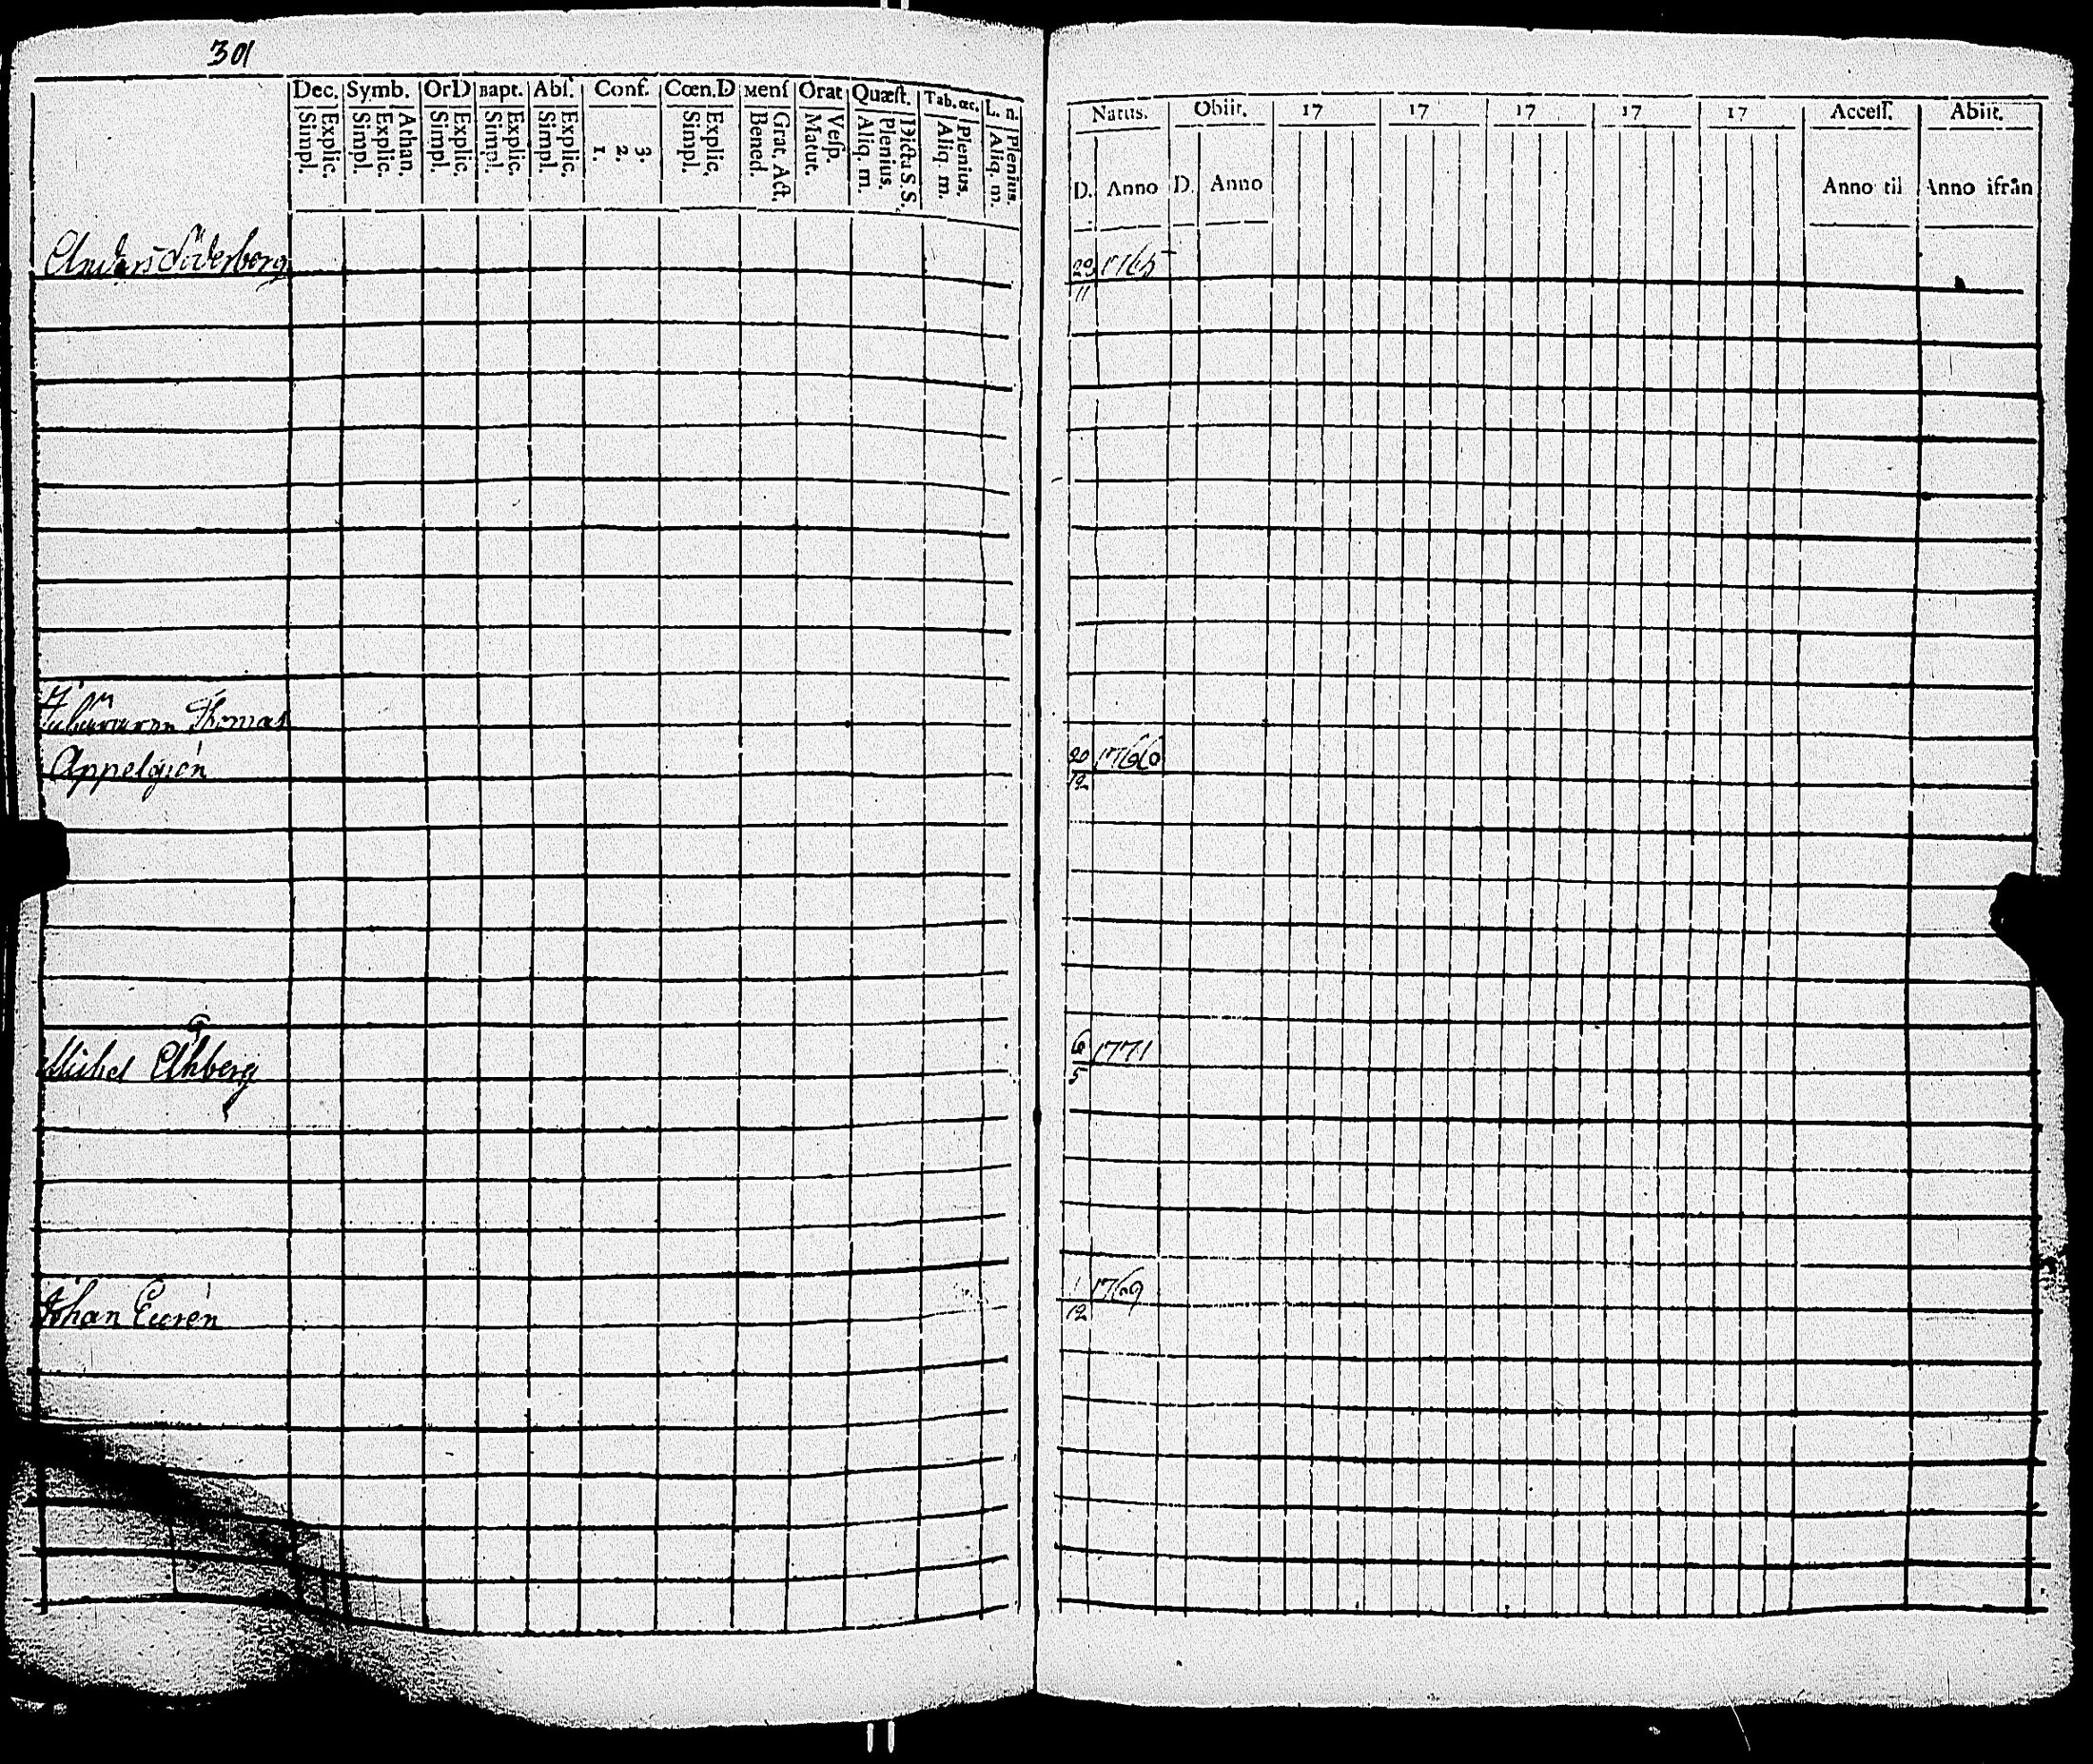 301
Dec. Symb. OrD Bapt. Abſ. Conf. Cœn.D Menſ Orat Quæſt. Tab. œc. L. n.
Simpl. Explic. Simpl. Explic. Athan. Simpl. Explic. Simpl. Explic. Simpl. Explic. 1. 2. 3. Simpl. Explic. Bened. Grat. Act. Matut. Veſp. Aliq. m. Plenius. Dicta S.S. Aliq. m. Plenius. Aliq. m. Plenius.
Natus. Obiit. 17 17 17 17 17 Acceſſ. Abiit.
D. Anno D. Anno Anno til Anno ifrån
Anders Söderberg 29/11 1765
Thomas
Appelgrén 20/12 1766
Michel Ekberg 6/5 1771
Johan Eurén 1/12 1769